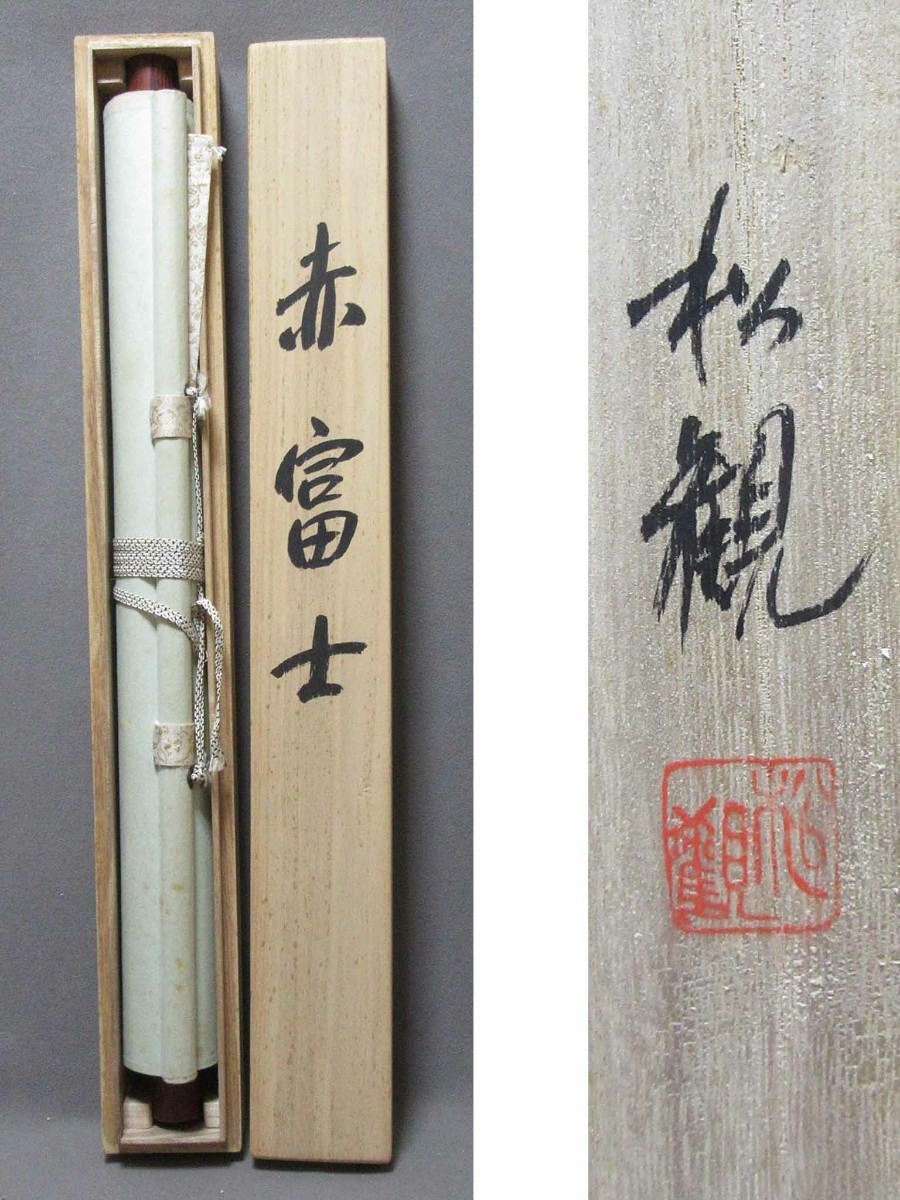 赤富士
松観
松観